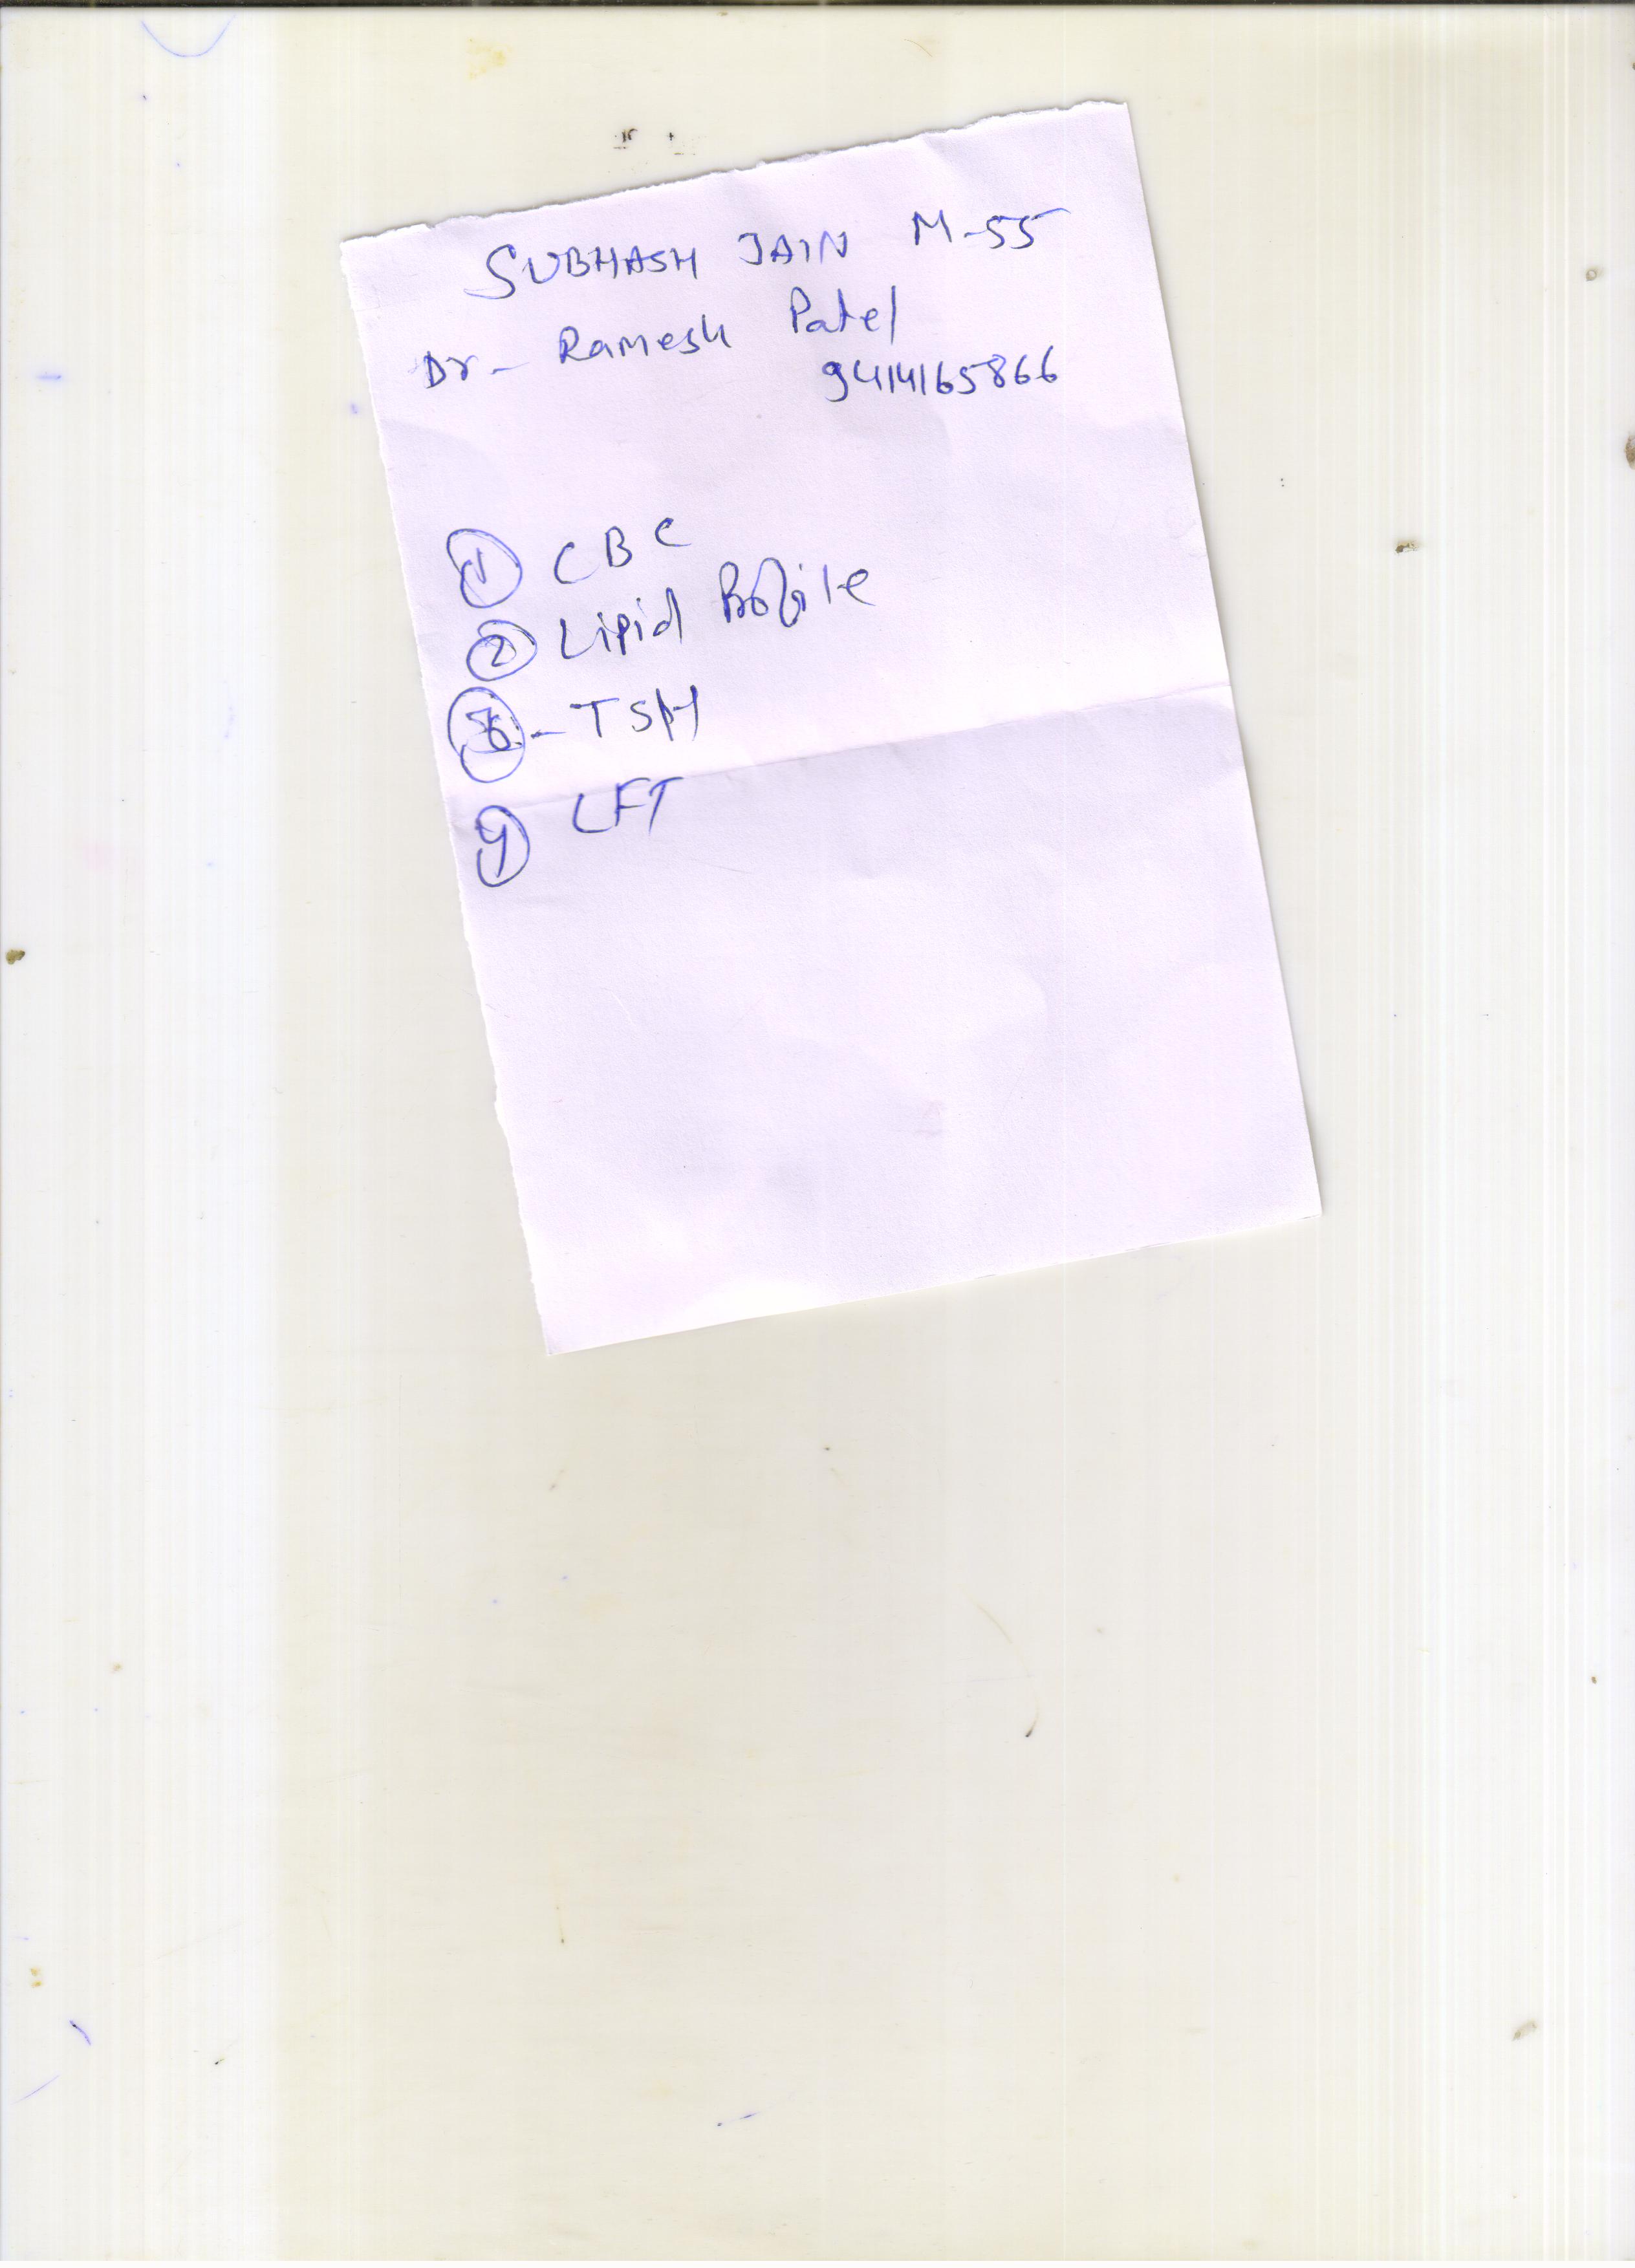 SUBHASH JAIN M-55
Dr- Ramesh Patel
9414165866
① CBC
② Lipid Profile
③ - TSH
④ LFT